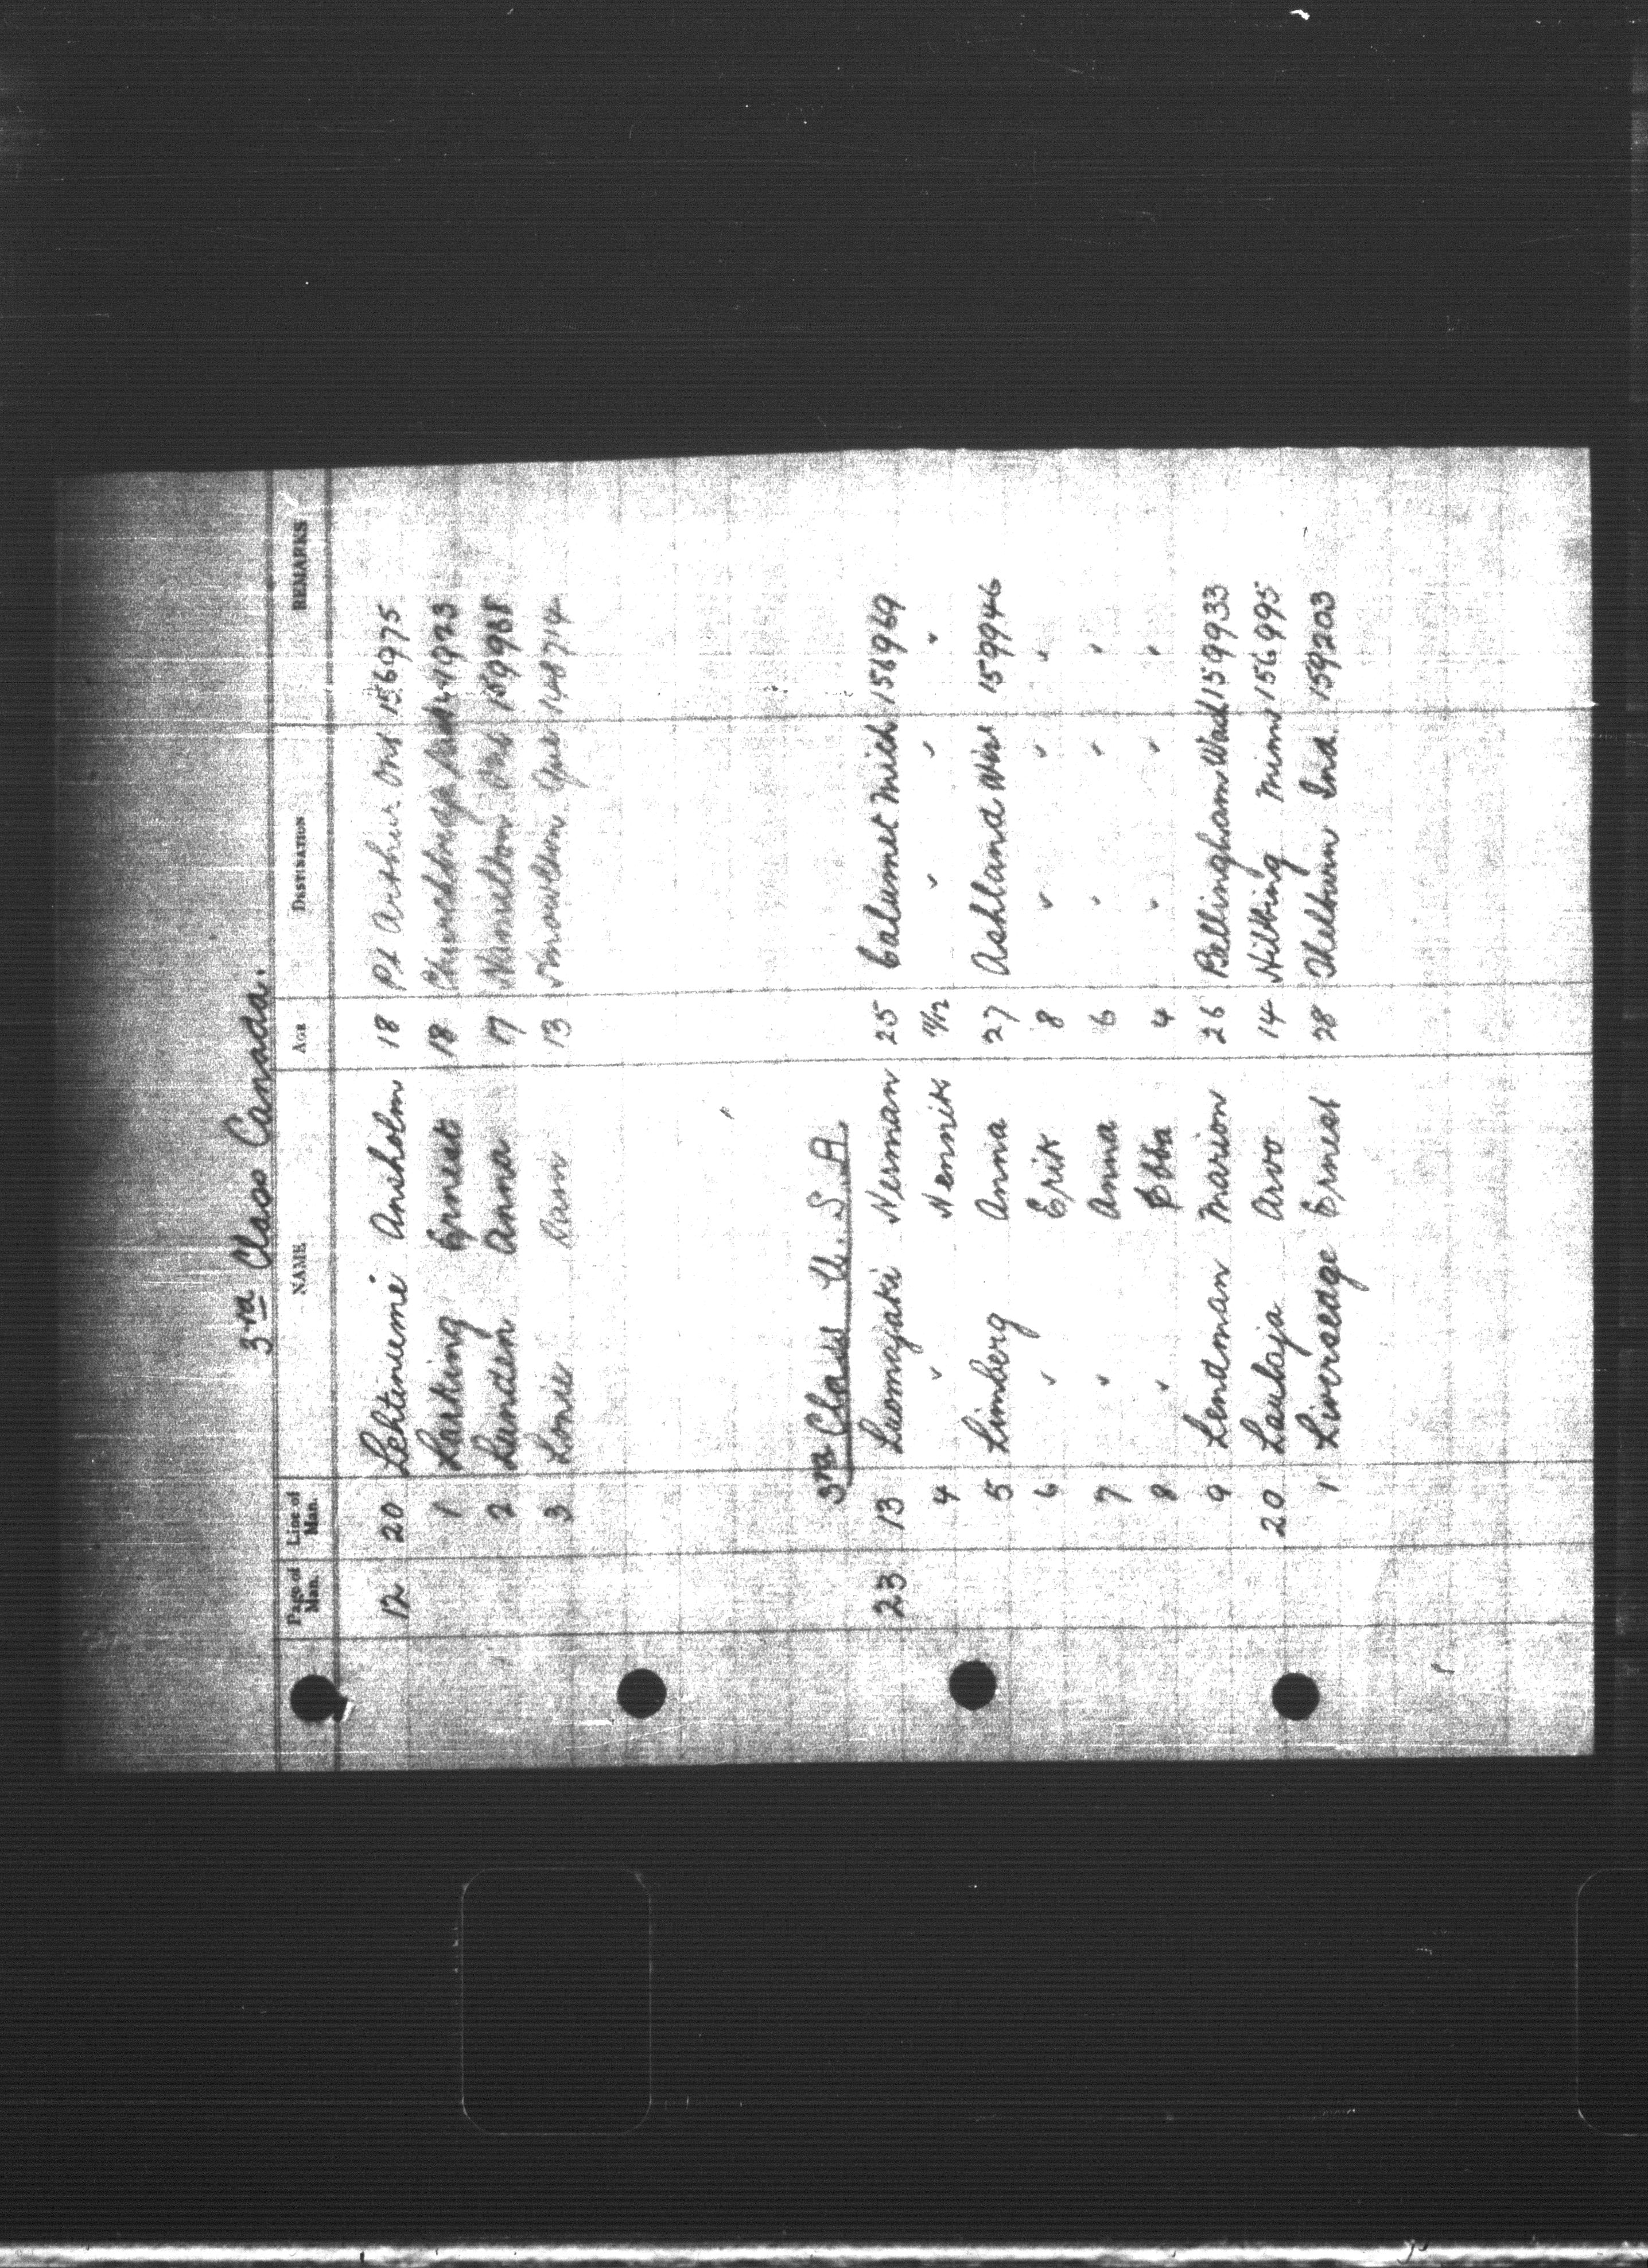 3rd Class Canada.
Page of Man. Line of Man. NAME AGE DESTINATION REMARKS
12 20 Lehtiniemi Ansholm 18 Pt Arthur Ont 156975
1 Larking Ernest 18
2 Lunden Anna 17 Hamilton Ont 159968
3 13 Knowlton Que 148714
3rd Class U.S.A.
23 13 Luomajaki Herman 25 Calumet Mich 156969
4 " Hennik 11/12 " " "
5 Limberg Anna 27 Ashland Wis 159946
6 " Erik 8 " " "
7 " Anna 6 " " "
8 " Ebba 4 " " "
9 Lendman Marion 26 Bellingham Wash 159933
20 Laulaja Arvo 14 Hibbing Minn 156995
1 Liverseage Ernest 28 Shelburn Ind. 159203